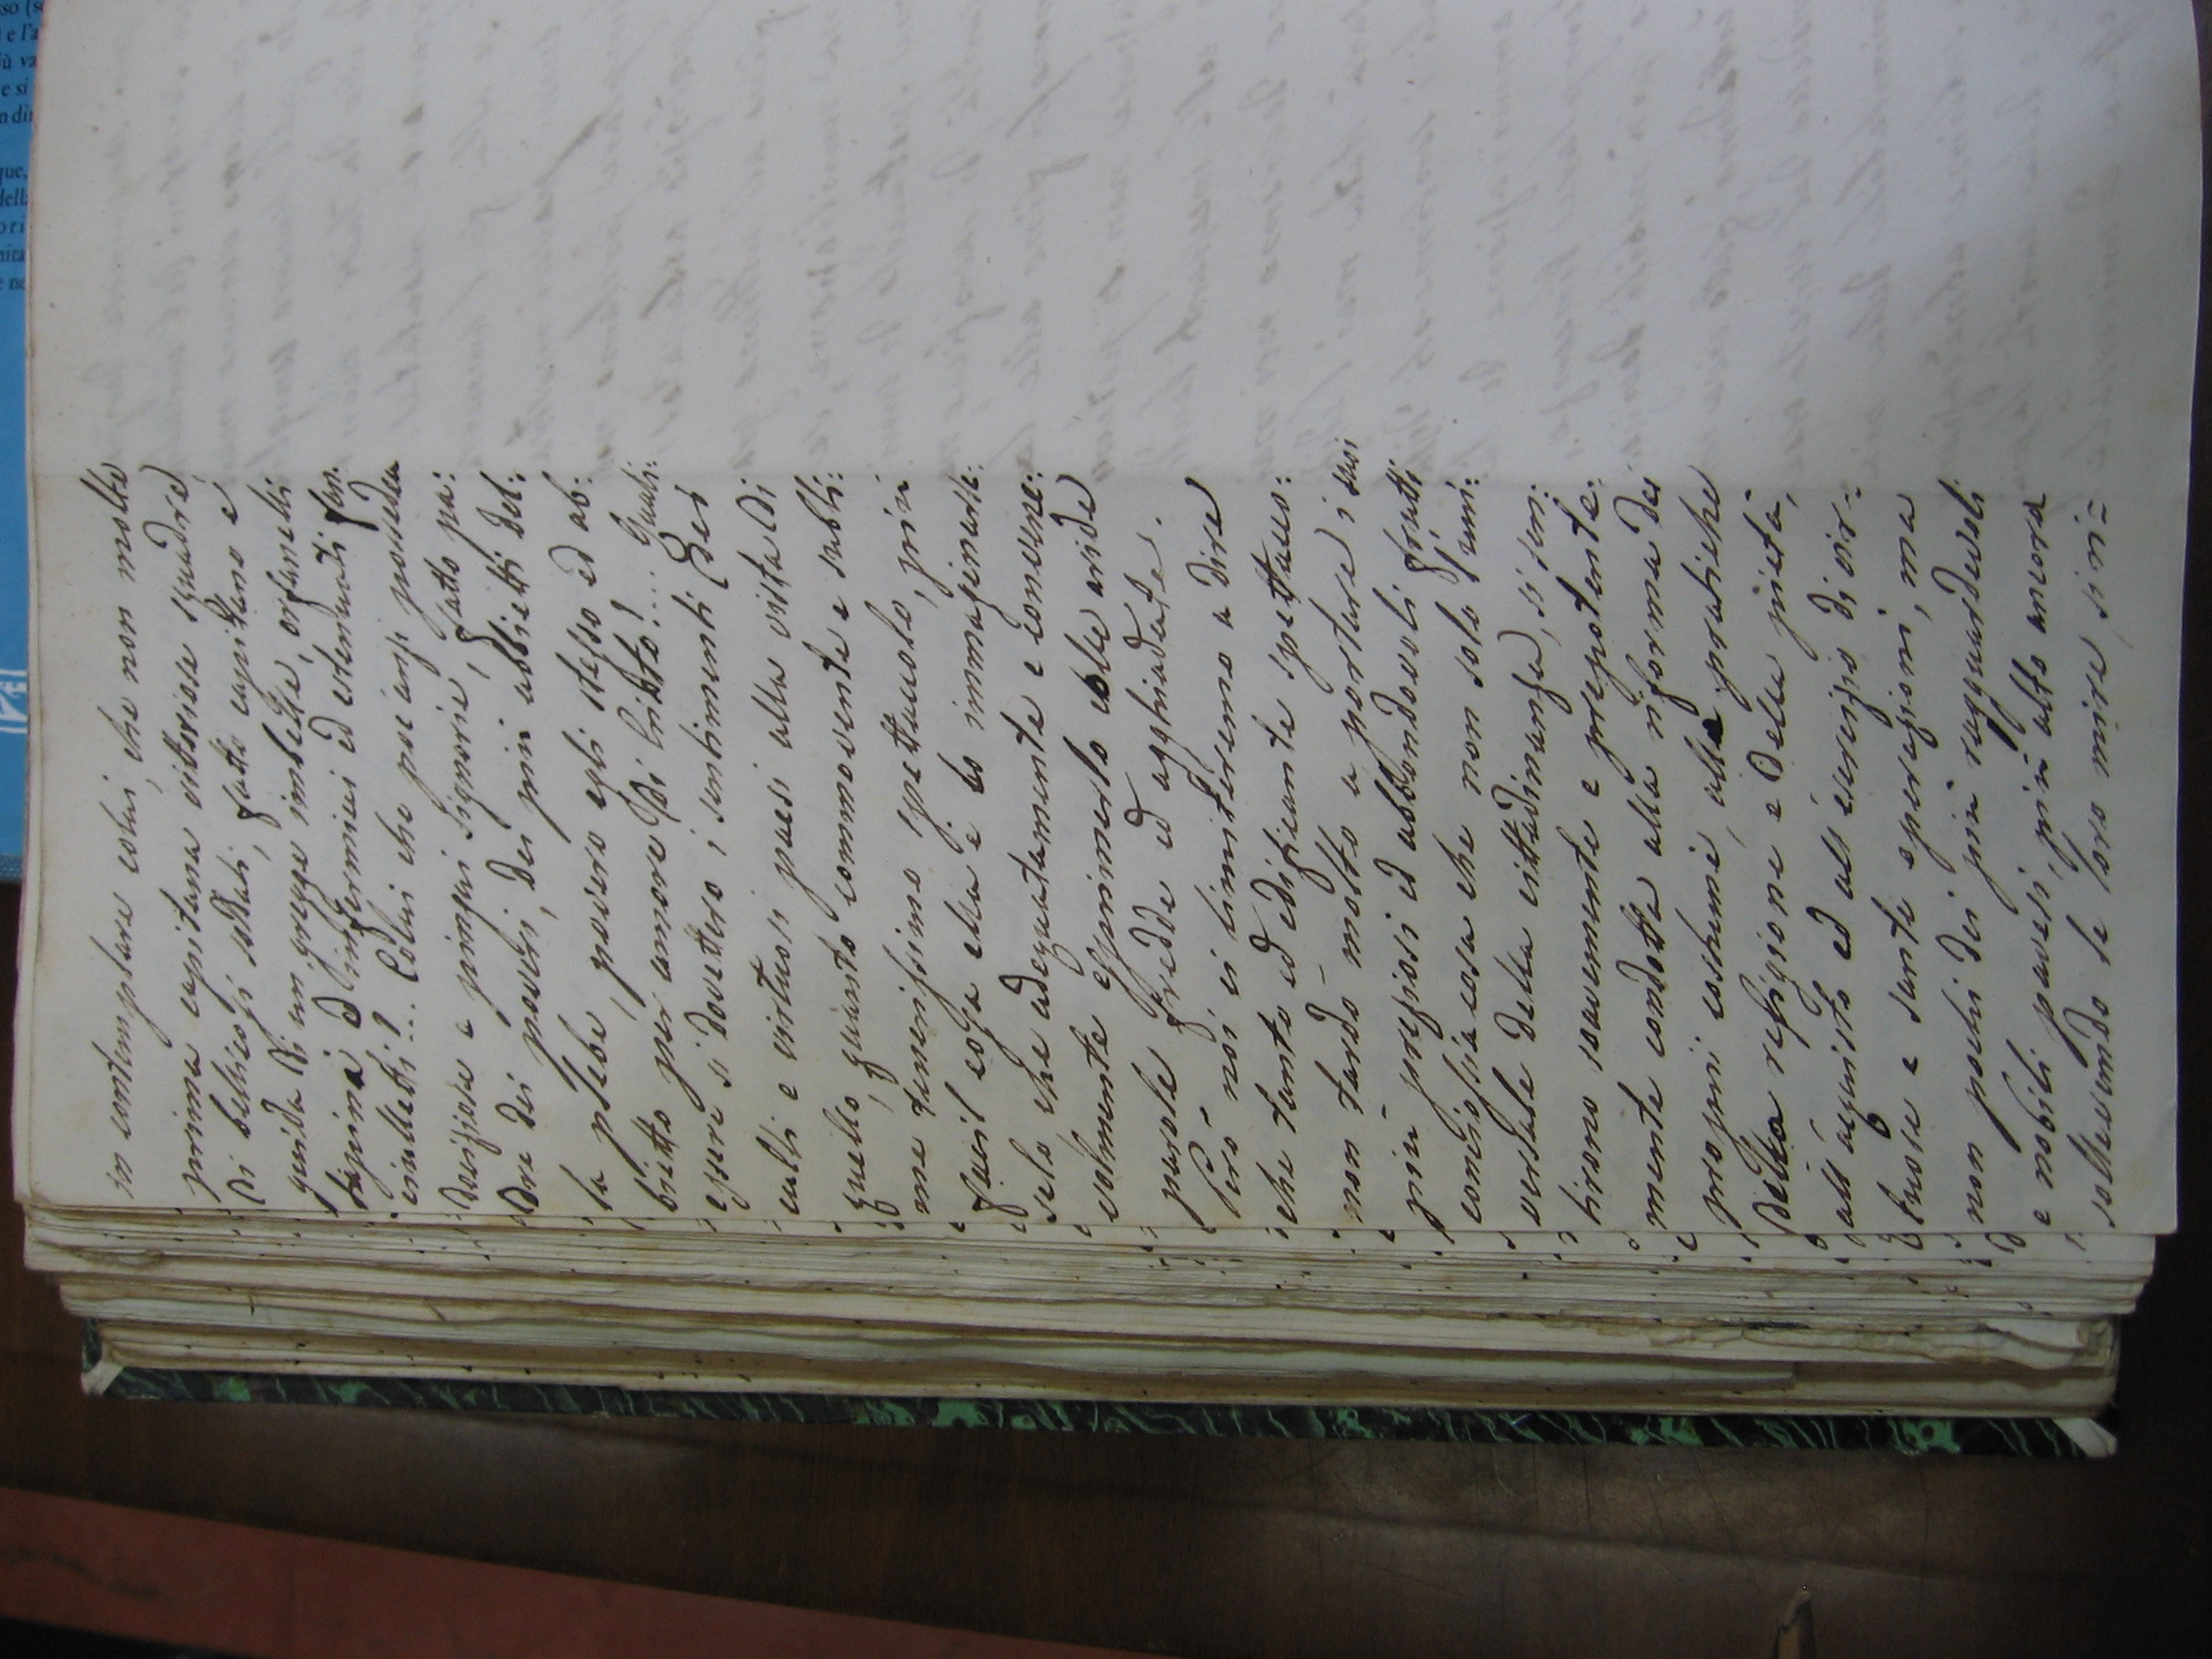 in contemplare colui, che non molto
prima capitana vittoriose squadre
di bellicosi soldati, fatto capitano e
guida di un gregge imbelle, orfanelli
tapini d infermici ed estenuati fan:
ciulletti?... Colui che poc'anzi possedea
doviziose e pingui signorie, fatto pa:
dre dei poveri, dei più abbietti del:
la plebe, povero egli stesso ed ab:
bietto per amore di Cristo!... Quali:
essere si dovettero i sentimenti dei
culti e virtuosi pavesi alla vista di
quello, quanto commovente e subli:
me tenerissimo spettacolo, più
facil cosa ella è lo immaginarse:
selo che adeguatamente e convene:
volmente esprimerlo colle aride
parole fredde ed agghiadate.
Però noi ci limiteremo a dire
che tanto ed edificante spettaco:
non tardò molto a portare i suoi
più preziosi ed abbondevoli frutti
conciossiacosa che non solo l'uni:
versale della cittadinanza, si sen:
tirono soavemente e prepotente:
mente condotta alla riforma dei
proprii costumi, alle pratiche
della religione e della pietà,
all'acquisto ed all'esercizio di vir-
tuose e sante operazioni, ma
non pochi dei più ragguardevoli
e nobili pavesi, più alto ancora
sollevando le loro mire, sin=